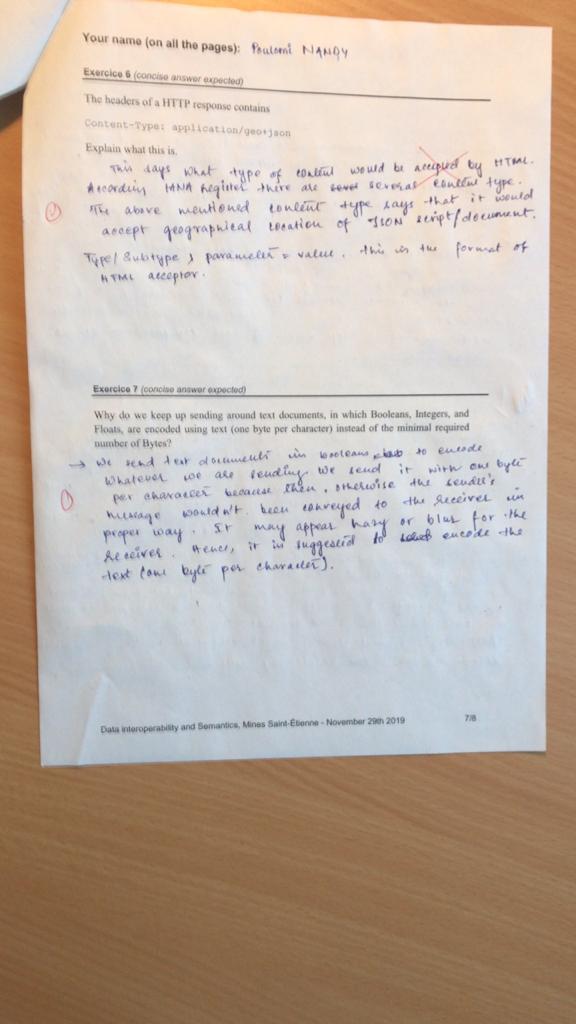 Your name (on all the pages): Poulomi NANDY
Exercice 6 (concise answer expected)
The headers of a HTTP response contains
Content-Type: application/geo+json
Explain what this is.
This says what type of content would be accepted by HTML.
According IANA Register there are several content type.
The above mentioned content type says that it would
accept geographical location of JSON script/document.
Type/Subtype ; parameter = value. this is the format of
HTML acceptor.
Exercice 7 (concise answer expected)
Why do we keep up sending around text documents, in which Booleans, Integers, and
Floats, are encoded using text (one byte per character) instead of the minimal required
number of Bytes?
→ We send text documents in booleans, to encode
whatever we are sending. We send it with one byte
per character because then, otherwise the sender's
message wouldn't been conveyed to the receiver in
proper way. It may appear hazy or blur for the
receiver. Hence, it is suggested to encode the
text (one byte per character).
Data interoperability and Semantics, Mines Saint-Étienne - November 29th 2019
7/8